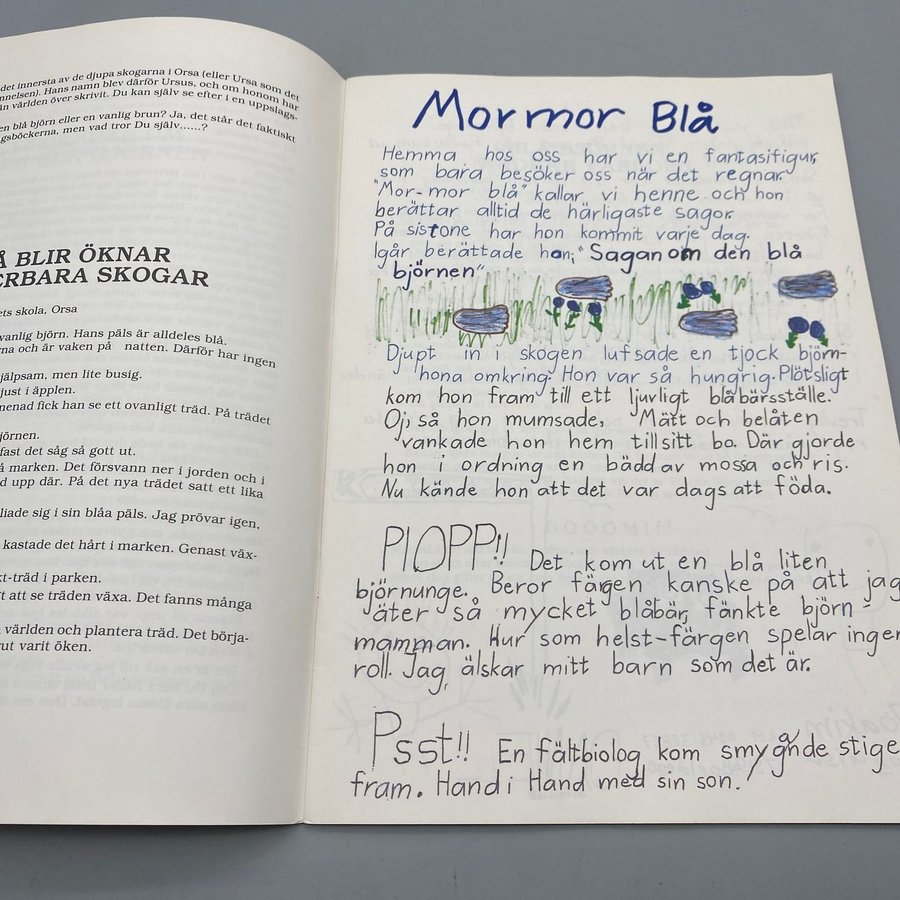 det innersta av de djupa skogarna i Orsa (eller Ursa som det
nnelsen). Hans namn blev därför Ursus, och om honom har
än världen över skrivit. Du kan själv se efter i en uppslags-
en blå björn eller en vanlig brun? Ja, det står det faktiskt
gsböckerna, men vad tror Du själv......?
Å BLIR ÖKNAR
ERBARA SKOGAR
ets skola, Orsa
vanlig björn. Hans päls är alldeles blå.
rna och är vaken på natten. Därför har ingen
jälpsam, men lite busig.
just i äpplen.
menad fick han se ett ovanligt träd. På trädet
björnen.
fast det såg så gott ut.
å marken. Det försvann ner i jorden och i
d upp där. På det nya trädet satt ett lika
liade sig i sin blåa päls. Jag prövar igen,
kastade det hårt i marken. Genast väx-
kt-träd i parken.
gt att se träden växa. Det fanns många
a världen och plantera träd. Det börja-
rut varit öken.
Mormor Blå
Hemma hos oss har vi en fantasifigur,
som bara besöker oss när det regnar.
"Mor-mor blå" kallar vi henne och hon
berättar alltid de härligaste sagor.
På sistone har hon kommit varje dag.
Igår berättade hon; "Sagan om den blå
björnen"
Djupt in i skogen lufsade en tjock björn-
hona omkring. Hon var så hungrig. Plötsligt
kom hon fram till ett ljuvligt blåbärsställe.
Oj, så hon mumsade. Mätt och belåten
vankade hon hem till sitt bo. Där gjorde
hon i ordning en bädd av mossa och ris.
Nu kände hon att det var dags att föda.
PLOPP!! Det kom ut en blå liten
björnunge. Beror färgen kanske på att jag
äter så mycket blåbär, fänkte björn-
mamman. Hur som helst-färgen spelar ingen
roll. Jag älskar mitt barn som det är.
Psst!! En fältbiolog kom smygande stige
fram. Hand i Hand med sin son.